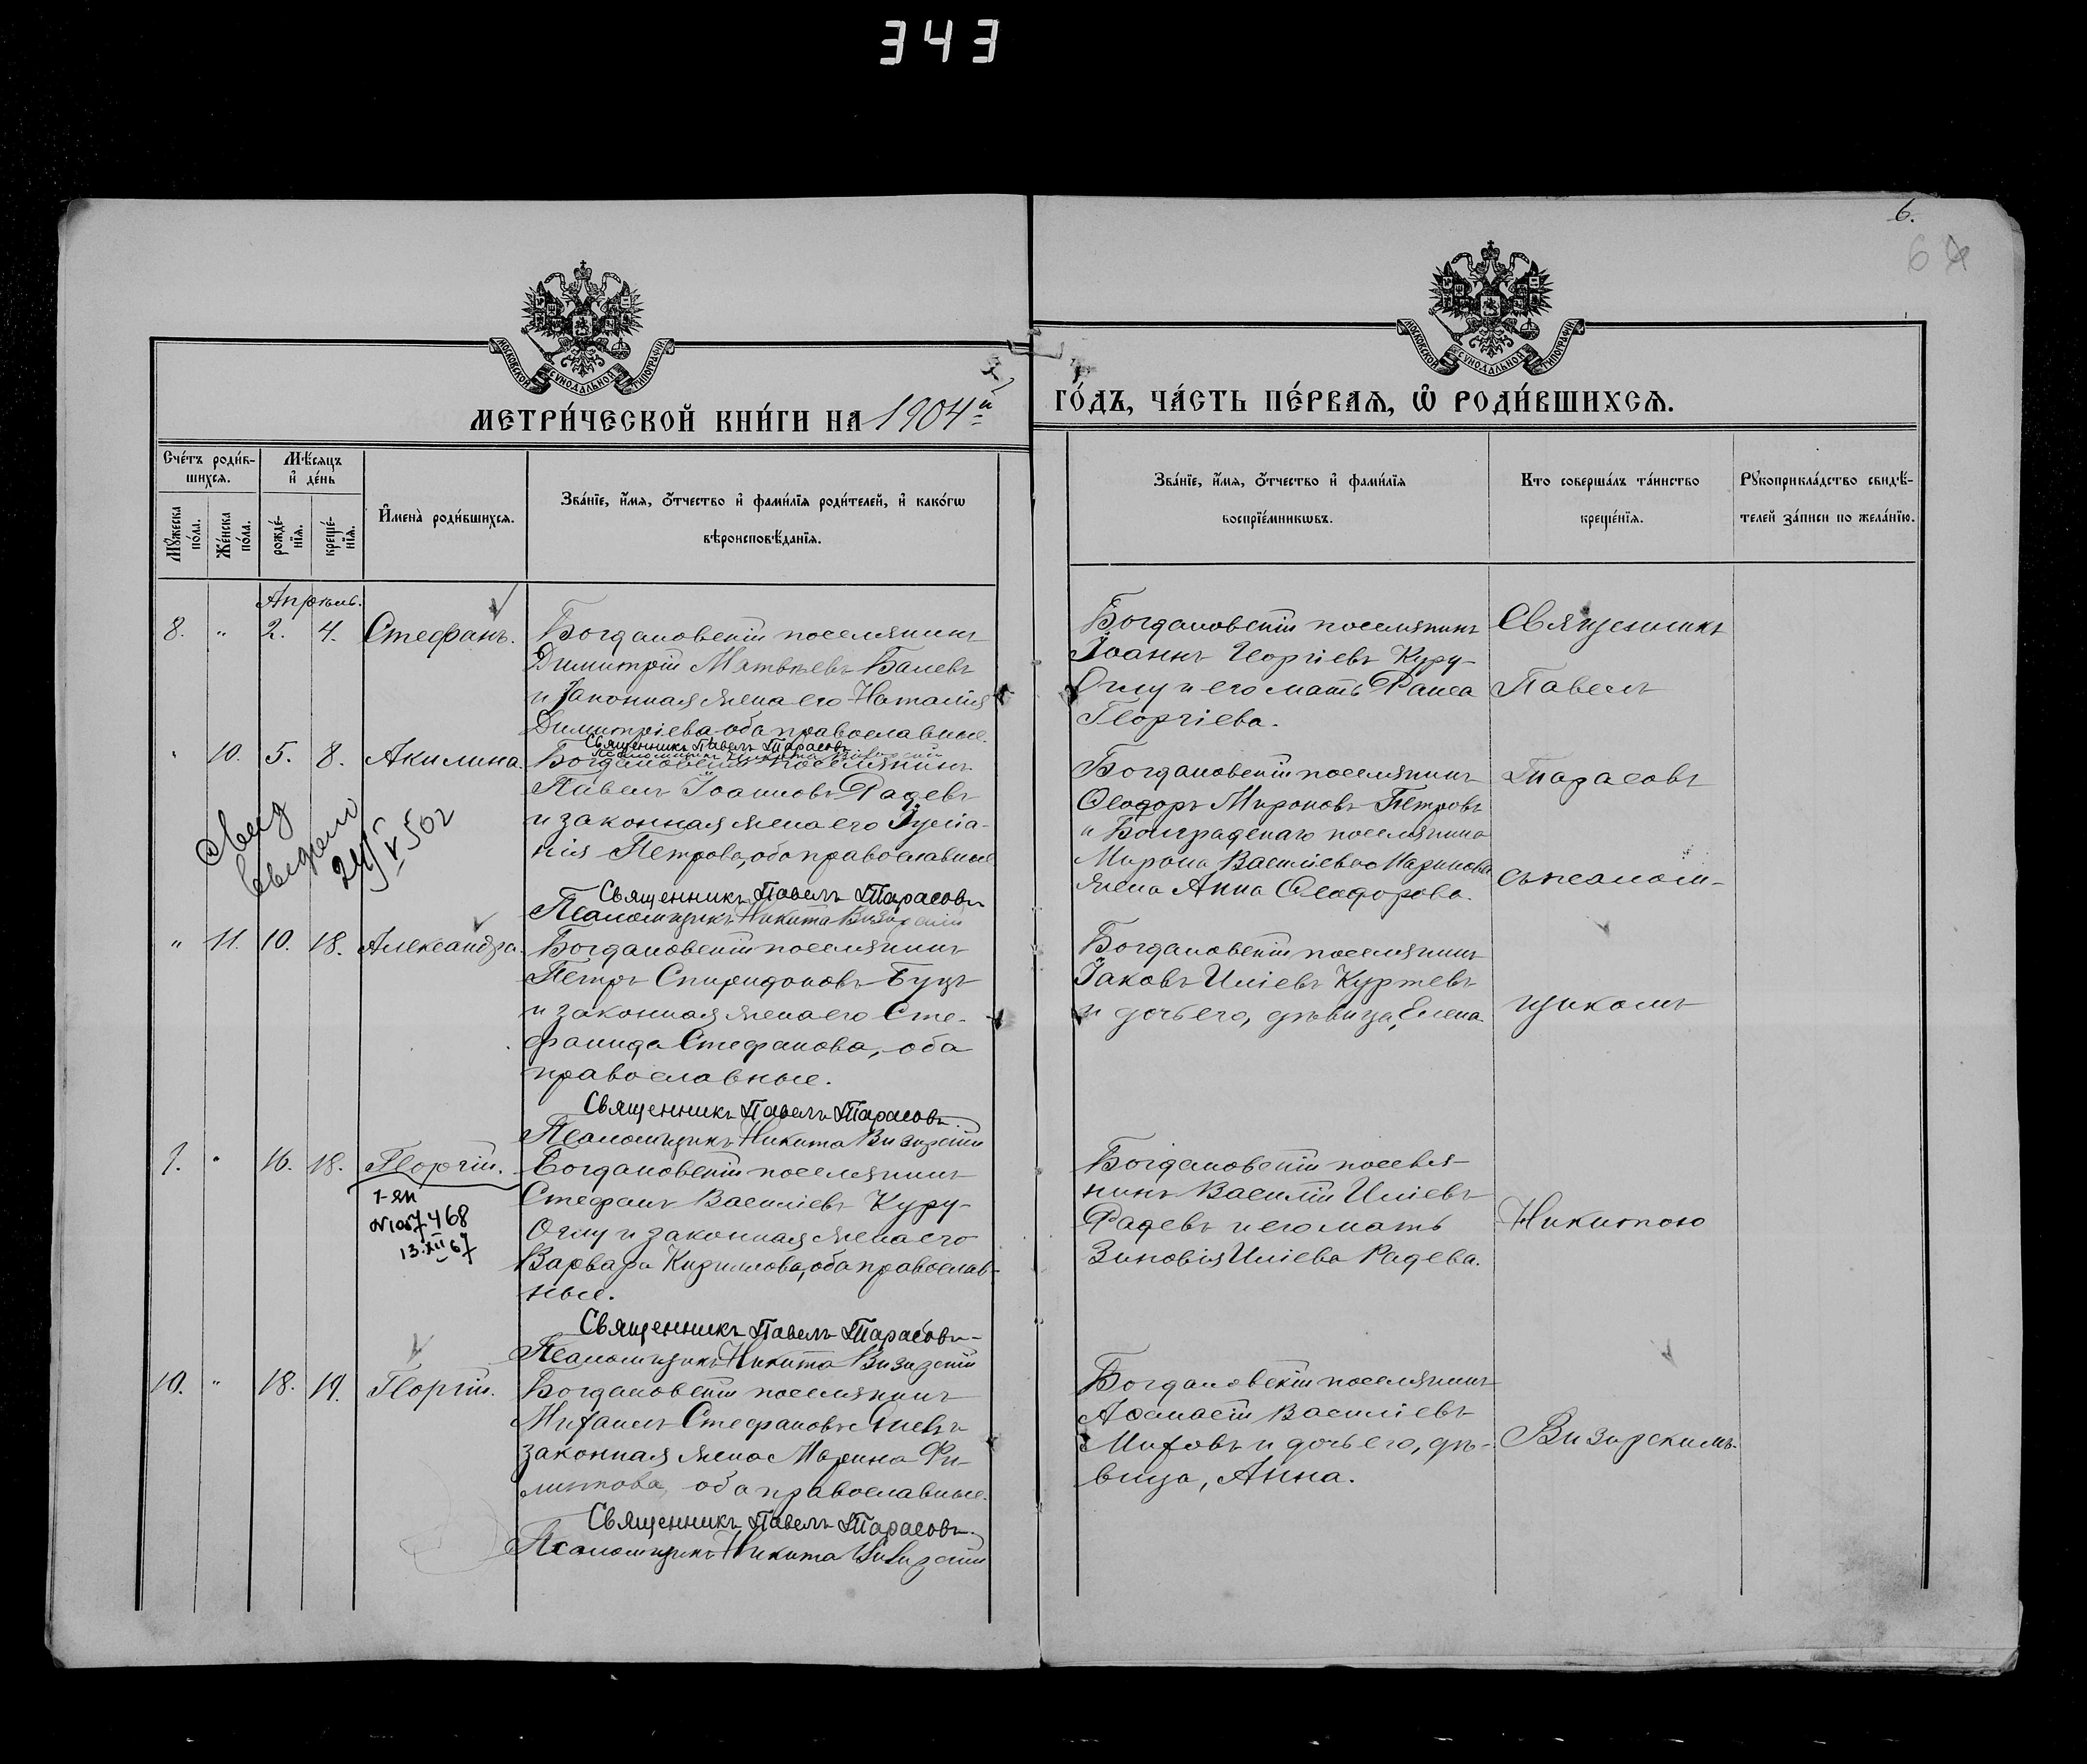 343
6.
6
МОСКОВСКОЙ СѴНОДАЛЬНОЙ ТИПОГРАФІИ
МОСКОВСКОЙ СѴНОДАЛЬНОЙ ТИПОГРАФІИ
МЕТРИ́ЧЕСКОЙ КНИ́ГИ НА 1904й
ГО́ДЪ, ЧА́СТЬ ПЕ́РВАѦ, Ѡ҆ РОДИ́ВШИХСѦ.
Сче́тъ роди́в-
шихсѧ.
Мѣ́сѧцъ
и҆ де́нь
Мꙋ́жеска
по́ла.
Же́нска
по́ла.
рожде́-
нїѧ.
креще́-
нїѧ.
И҆мена̀ роди́вшихсѧ.
Зва́нїе, и҆́мѧ, ѻ҆́тчество и҆ фами́лїѧ роди́телей, и҆ како́гѡ
вѣроисповѣ́данїѧ.
Зва́нїе, и҆́мѧ, ѻ҆́тчество и҆ фами́лїѧ
воспрїе́мникѡвъ.
Кто соверша́лъ та́инство
креще́нїѧ.
Рꙋкоприкла́дство свидѣ́-
телей за́писи по жела́нїю.
Апрѣль.
8. " 2. 4. Стефанъ.
Богдановскій поселянинъ
Димитрій Матвѣевъ Балевъ
и законная жена его Наталія
Димитріева, оба православные.
Священникъ Павелъ Тарасовъ
Псаломщикъ Никита Визирскій
Богдановскій поселянинъ
Іоаннъ Георгіевъ Куру-
Оглу и его мать Раиса
Георгіева.
Священникъ
Павелъ
" 10. 5. 8. Акилина.
Богдановскій поселянинъ
Павелъ Іоанновъ Радевъ
и законная жена его Іуліа-
нія Петрова, оба православные
Священникъ Павелъ Тарасовъ
Псаломщикъ Никита Визирскій
Богдановскій поселянинъ
Ѳеодоръ Мироновъ Петровъ
и Болградскаго поселянина
Мирона Василіева Маринова
жена Анна Ѳеодорова.
Тарасовъ
съ псалом-
" 11. 10. 18. Александра.
Богдановскій поселянинъ
Петръ Спиридоновъ Буцъ
и законная жена его Сте-
фанида Стефанова, оба
православные.
Священникъ Павелъ Тарасовъ.
Псаломщикъ Никита Визирскій
Богдановскій поселянинъ
Іаковъ Иліевъ Куртевъ
и дочь его, дѣвица, Елена.
щикомъ
9. " 16. 18. Георгій.
13.XII 67
Богдановскій поселянинъ
Стефанъ Василіевъ Куру-
Оглу и законная жена его
Варвара Кириллова, оба православ-
ные.
Священникъ Павелъ Тарасовъ
Псаломщикъ Никита Визирскій
Богдановскій поселя-
нинъ Василій Иліевъ
Радевъ и его мать
Зиновія Иліева Радева.
Никитою
10. " 18. 19. Георгій.
Богдановскій поселянинъ
Михаилъ Стефановъ
законная жена Марина Фи-
липпова, оба православные.
Священникъ Павелъ Тарасовъ.
Псаломщикъ Никита Визирскій
Богдановскій поселянинъ
Аѳанасій Василіевъ
Мифовъ и дочь его, дѣ-
вица, Анна.
Визирскимъ.